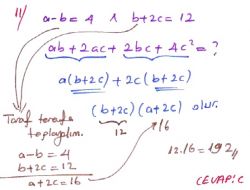 11/ a-b=4 ∧ b+2c=12
ab+2ac+2bc+4c²=?
a(b+2c)+2c(b+2c)
(b+2c)(a+2c) olur.
12 16
Taraf tarafa
toplayalım.
a-b=4
b+2c=12
a+2c=16
12.16=192//
CEVAP:C